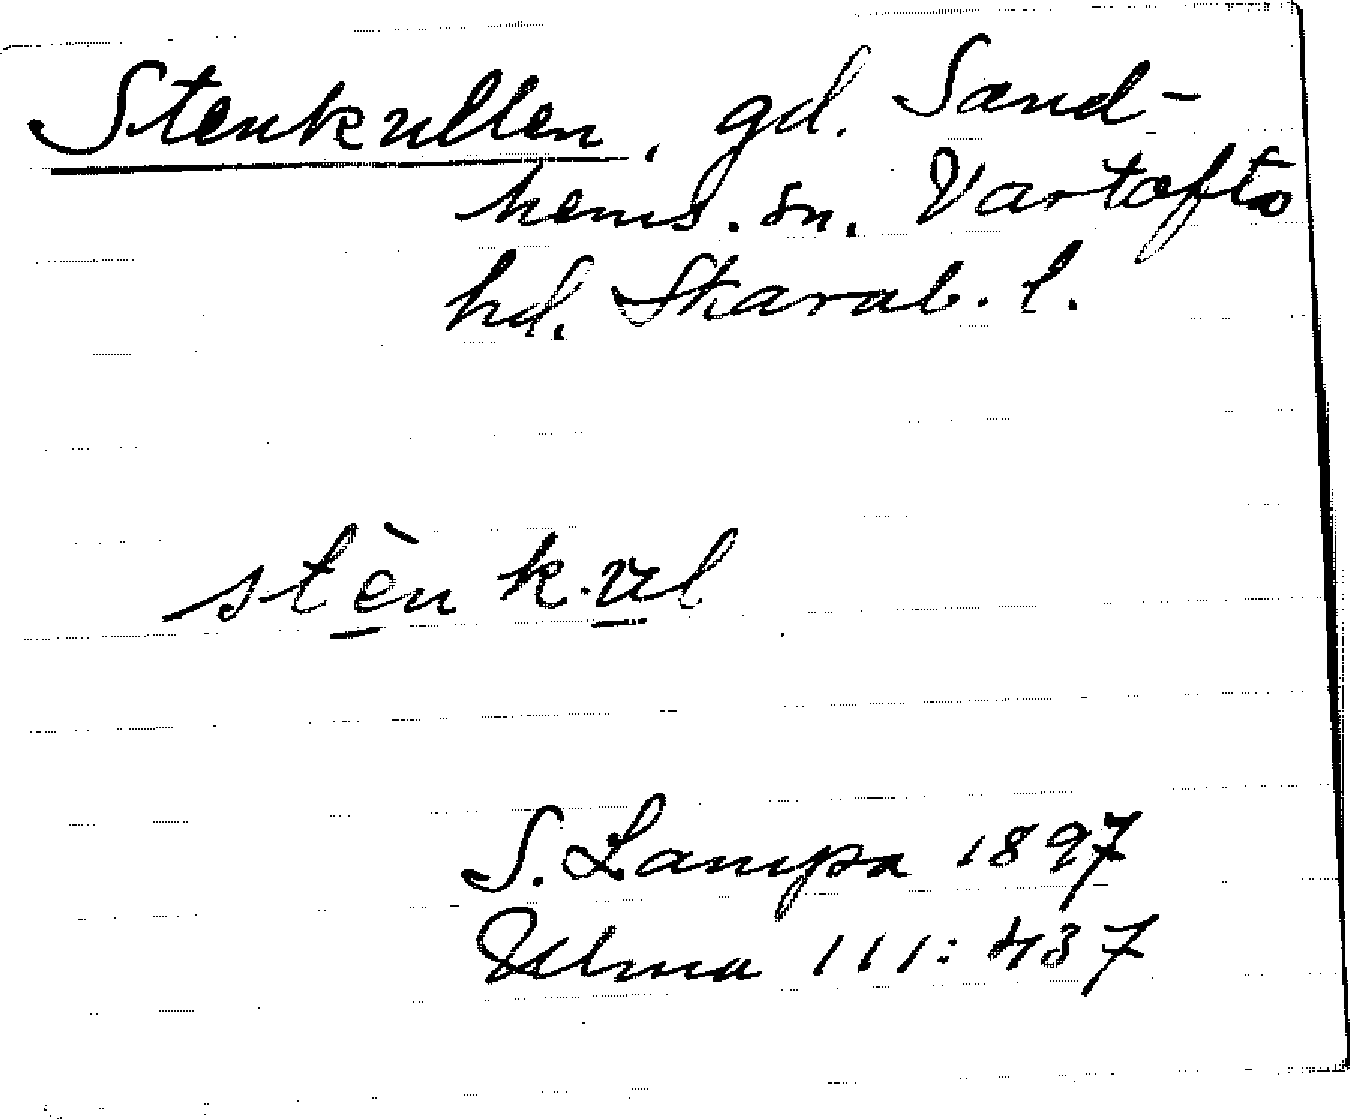 Stenkullen, gd. Sand-
hems. sn. Vartofta
hd. Skarab. l.
stènk.ul
S. Lampa 1897
Ulma 111:437